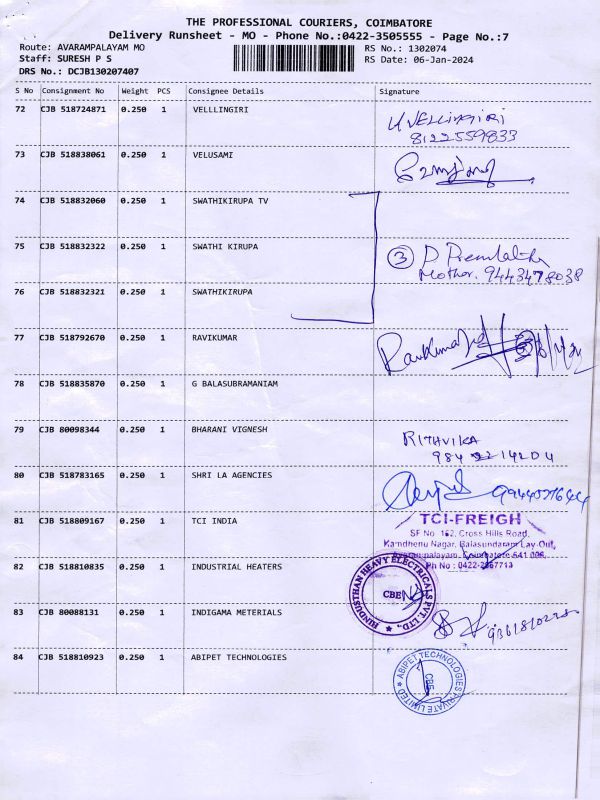 THE PROFESSIONAL COURIERS, COIMBATORE
Delivery Runsheet - MO - Phone No.:0422-3505555 - Page No.:7
Route: AVARAMPALAYAM MO RS No.: 1302074
Staff: SURESH P S RS Date: 06-Jan-2024
DRS No.: DCJB130207407
S No Consignment No Weight PCS Consignee Details Signature
72 CJB 518724871 0.250 1 VELLLINGIRI
U VELLINGIRI
8122559833
73 CJB 518838061 0.250 1 VELUSAMI
74 CJB 518832060 0.250 1 SWATHIKIRUPA TV
75 CJB 518832322 0.250 1 SWATHI KIRUPA
3 P Premlatha
Mother. 9443478038
76 CJB 518832321 0.250 1 SWATHIKIRUPA
77 CJB 518792670 0.250 1 RAVIKUMAR
Ravikumar
78 CJB 518835870 0.250 1 G BALASUBRAMANIAM
79 CJB 80098344 0.250 1 BHARANI VIGNESH
RITHVIKA
80 CJB 518783165 0.250 1 SHRI LA AGENCIES
81 CJB 518809167 0.250 1 TCI INDIA
TCI-FREIGH
SF No. 162, Cross Hills Road,
Kamdhenu Nagar, Balasundaram Lay-Out,
Avarampalayam, Coimbatore 641 006
Ph No : 0422-2567713
82 CJB 518810835 0.250 1 INDUSTRIAL HEATERS
HINDUSTHAN HEAVY ELECTRICALS PVT. LTD.,
CBE
83 CJB 80088131 0.250 1 INDIGAMA METERIALS
84 CJB 518810923 0.250 1 ABIPET TECHNOLOGIES
ABIPET TECHNOLOGIES PRIVATE LIMITED
CBE